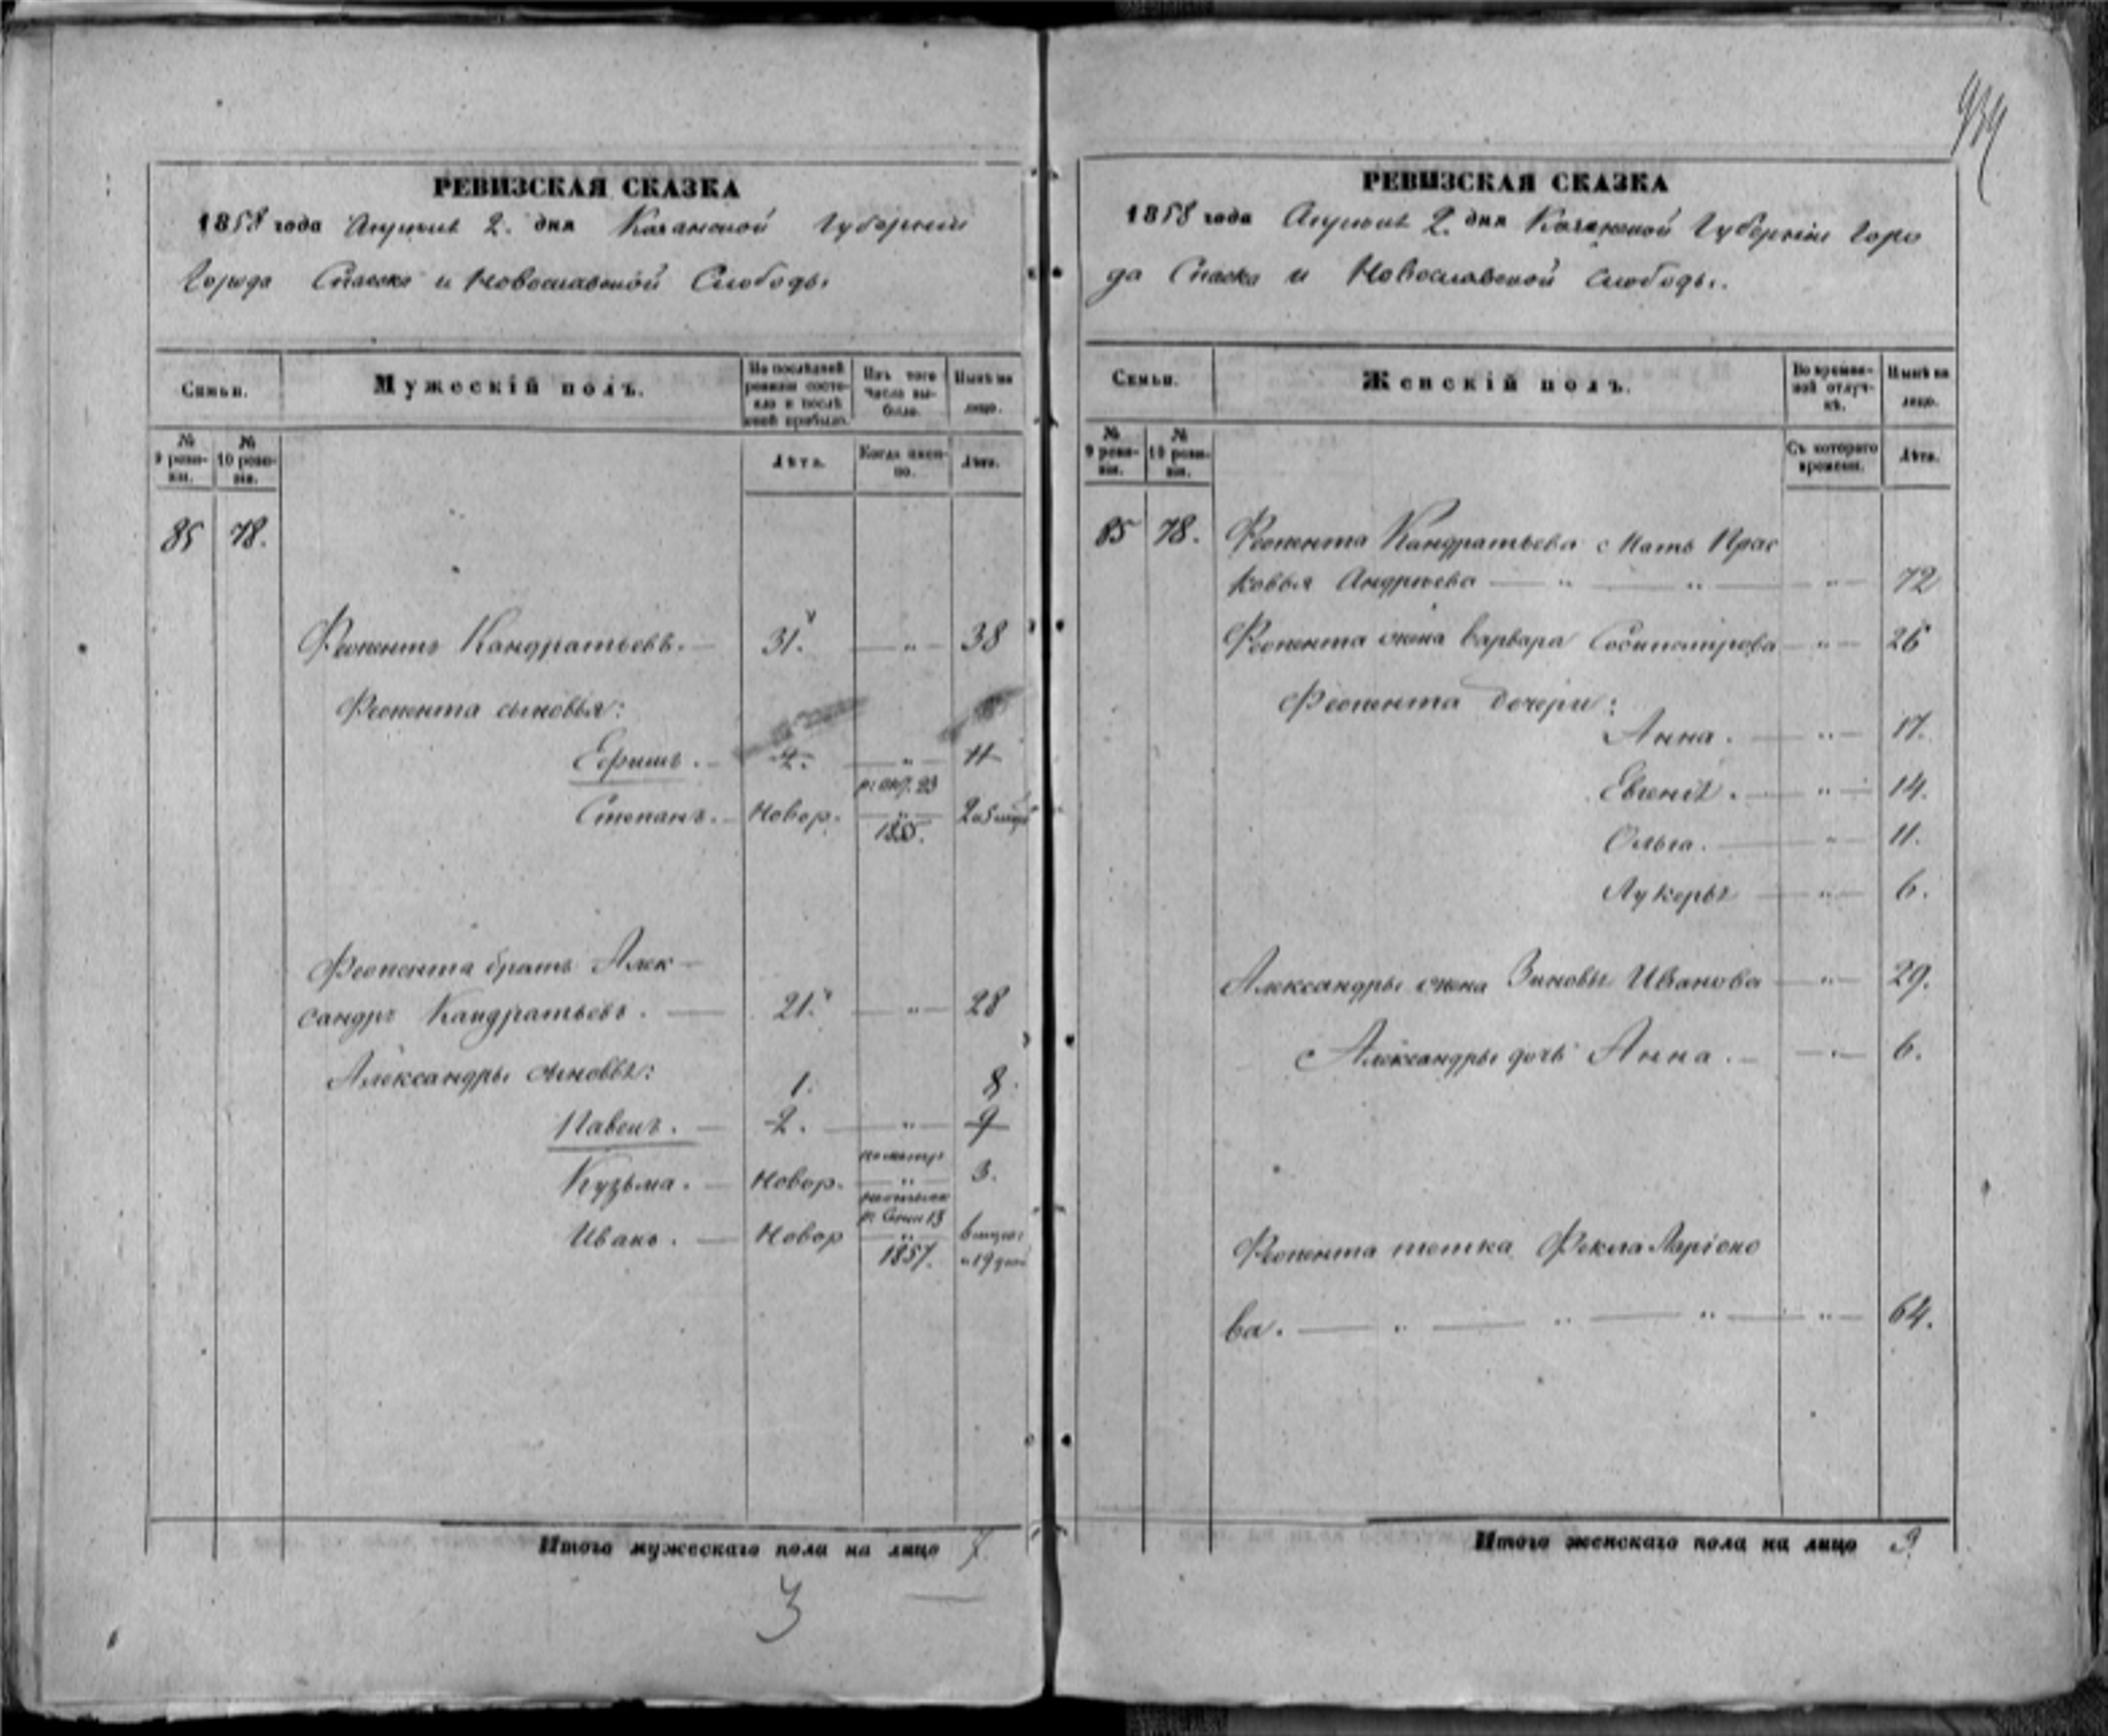 РЕВИЗСКАЯ СКАЗКА
1858 года Апреля 2. дня Казанской Губернии
Города Спаска и Новославской Слободы
Семьи.
Мужескій полъ.
По послѣдней ревизіи состояло и послѣ оной прибыло.
Изъ того числа выбыло.
Нынѣ на лицо.
№ 9 ревизіи.
№ 10 ревизіи.
Лѣта.
Когда именно.
Лѣта.
85 78.
Феопентъ Кандратьевъ. 31. " 38
Феопента сыновья:
Ефимъ. 4. " 11
Степанъ. Новор. р: окт. 23 185. 2 и 5 мцъ
Феопента братъ Алек
сандръ Кандратьевъ. 21. " 28
Александры сыновья:
1. 8.
Павелъ. 2. " 9
Кузьма. Новор. " 3.
Иванъ. Новор р: Сен 13 1857. 6 мцов и 19 дней
Итого мужескаго пола на лицо 7.
3
939
РЕВИЗСКАЯ СКАЗКА
1858 года Апреля 2. дня Казанской Губерніи Горо
да Спаска и Новославской слободы.
Семьи.
Женскій полъ.
Во временной отлучкѣ.
Нынѣ на лицо.
№ 9 ревизіи.
№ 10 ревизіи.
Съ котораго времени.
Лѣта.
85 78. Феопента Кандратьева Мать Прас
ковья Андреева " " " 72
Феопента жена Варвара Сосипатрова " 26
Феопента дочери:
Анна. " 17.
Евгенія. " 14.
Ольга. " 11.
Лукерья " 6.
Александры жена Зиновья Иванова " 29.
Александры дочь Анна. " 6.
Феопента тетка Фекла Ларіоно
ва. " " " " 64.
Итого женскаго пола на лицо 9